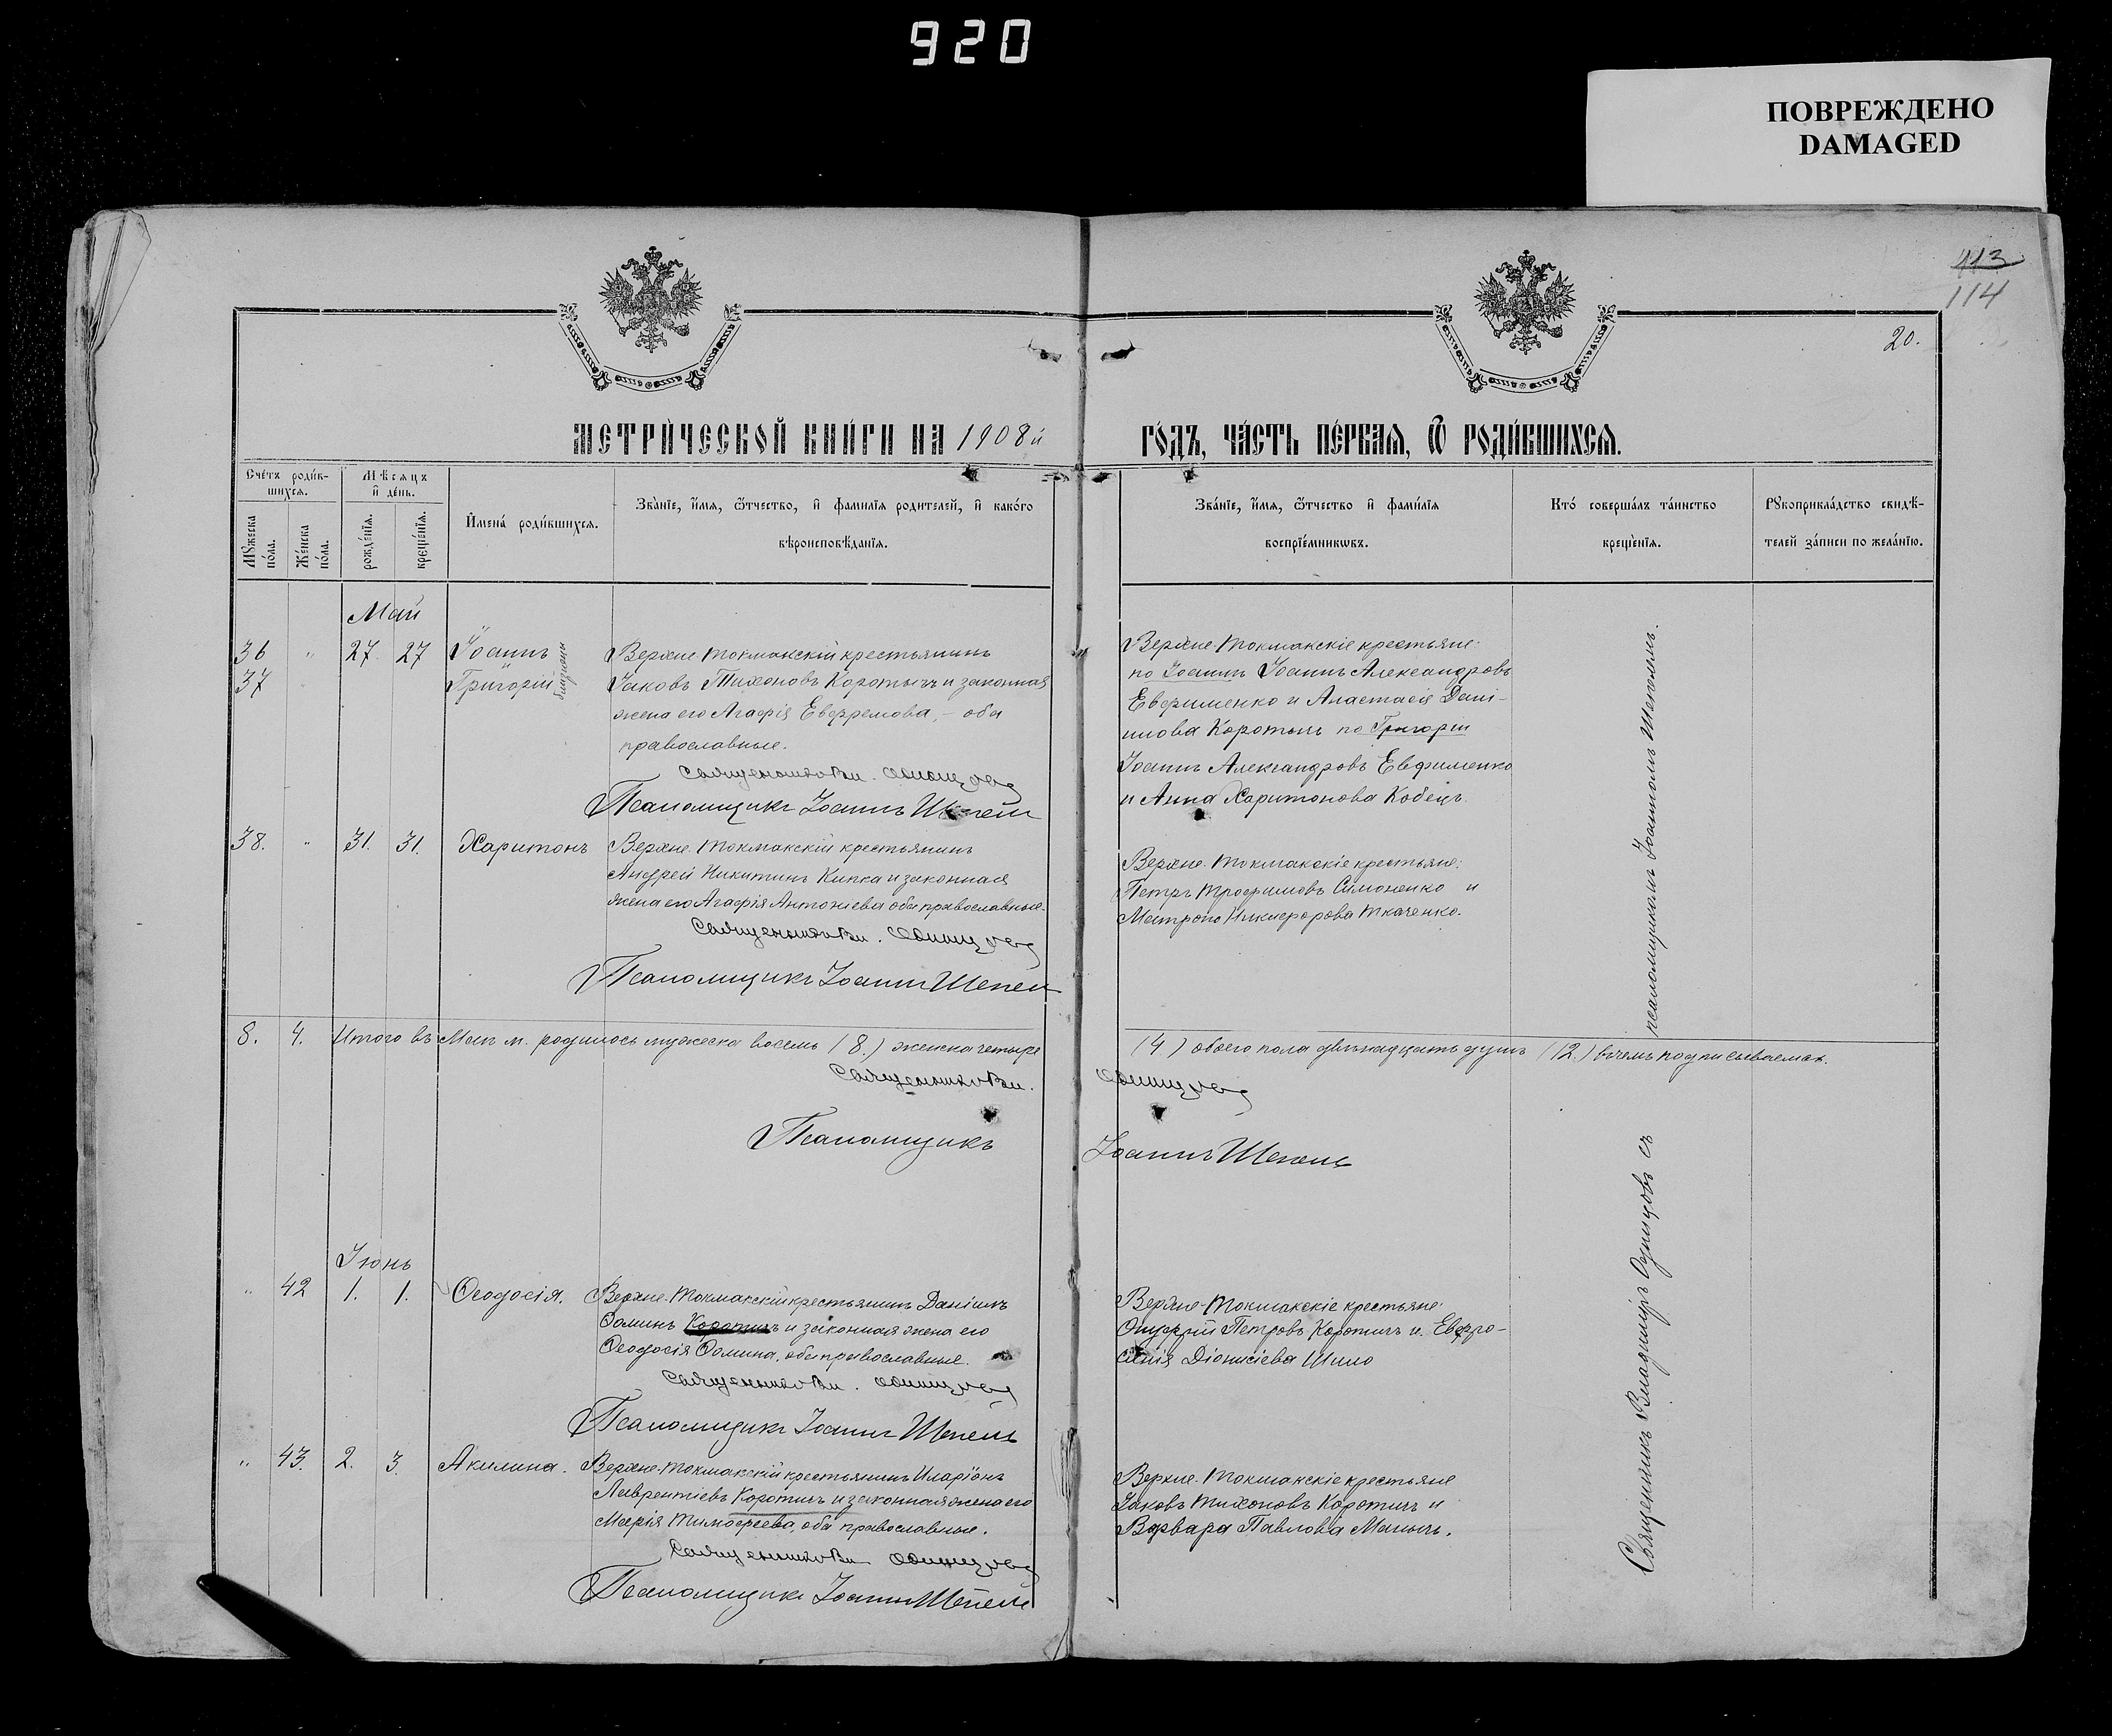 920
ПОВРЕЖДЕНО
DAMAGED
113
114
20.
МЕТРИ́ЧЕСКОЙ КНИ́ГИ НА 1908й ГО́ДЪ, ЧА́СТЬ ПЕ́РВАѦ, Ѽ РОДИ́ВШИХСѦ.
Сче́тъ роди́в-
шихсѧ.
Мѣсѧцъ
и҆ де́нь.
Мꙋ́жеска по́ла.
Же́нска по́ла.
рожде́нїѧ.
креще́нїѧ.
И҆мена̀ роди́вшихсѧ.
Зва́нїе, и҆́мѧ, ѻ҆́тчество, и҆ фами́лїѧ родителей, и҆ како́го
вѣроисповѣ́данїѧ.
Зва́нїе, и҆́мѧ, ѻ҆́тчество и҆ фами́лїѧ
воспрїе́мникѡвъ.
Кто́ соверша́лъ та́инство
креще́нїѧ.
Рꙋкоприкла́дство свидѣ́-
телей за́писи по жела́нїю.
Май
36 " 27 27 Іоаннъ
37 Григорій
близнецы
Верхне-Токмакскій крестьянинъ
Іаковъ Тихоновъ Коротычъ и законная
жена его Агафія Евфремова, – оба
православные.
Псаломщикъ Іоаннъ Шепель
Верхне-Токмакскіе крестьяне:
по Іоаннѣ Іоаннъ Александровъ
Евфименко и Анастасія Дані-
илова Коротычъ по Григоріи
Іоаннъ Александровъ Евфименко
и Анна Харитонова Кобецъ.
38. " 31. 31. Харитонъ
Верхне-Токмакскій крестьянинъ
Андрей Никитинъ Кипка и законная
жена его Агафія Антоніева оба православные.
Псаломщикъ Іоаннъ Шепель
Верхне-Токмакскіе крестьяне:
Петръ Трофимовъ Симоненко и
Матрона Никифорова Ткаченко.
8. 4. Итого въ Маѣ м. родилось мужеска восемь (8.) женска четыре (4) обоего пола двѣнадцать душъ (12.) въ чемъ подписываемся.
Псаломщикъ Іоаннъ Шепель
Іюнь
" 42 1. 1. Ѳеодосія.
Верхне-Токмакскій крестьянинъ Даніилъ
Ѳоминъ Коротичъ и законная жена его
Ѳеодосія Ѳомина, оба православные.
Псаломщикъ Іоаннъ Шепель
Верхне-Токмакскіе крестьяне:
Онуфрій Петровъ Коротичъ и Евфро-
синія Діонисіева Шило
" 43. 2. 3. Акилина.
Верхне-Токмакскій крестьянинъ Иларіонъ
Лаврентіевъ Коротичъ и законная жена его
Марія Тимофеева, оба православные.
Псаломщикъ Іоаннъ Шепель
Верхне-Токмакскіе крестьяне
Іаковъ Тихоновъ Коротичъ и
Варвара Павлова
Священникъ Владиміръ Одинцовъ съ
псаломщикомъ Іоанномъ Шепелемъ.